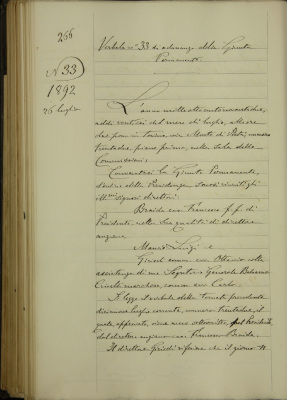 266
Verbale n° 33 di adunanza della Giunta
Permanente
N 33
1892
26 luglio
L'anno mille otto cento novantadue,
addì ventisei del mese di luglio, alle ore
due pom. in Torino, via Monte di Pietà, numero
trentadue, piano primo, nella Sala delle
Commissioni;
Convocatasi la Giunta Permanente,
d'ordine della Presidenza, sonosi riuniti gli
Ill.mi Signori direttori:
Braida cav. Francesco f. f. di
Presidente, nella sua qualità di direttore
anziano
Manzi Luigi e
comm. avv. Ottavio colla
assistenza di me Segretario Generale
marchese, cav. Carlo.
Si legge il verbale della Tornata precedente
diciannove luglio corrente, numero trentadue, il
quale approvato, viene sottoscritto, dal Presidente
dal direttore anziano cav. Francesco Braida.
Il direttore riferisce che il giorno